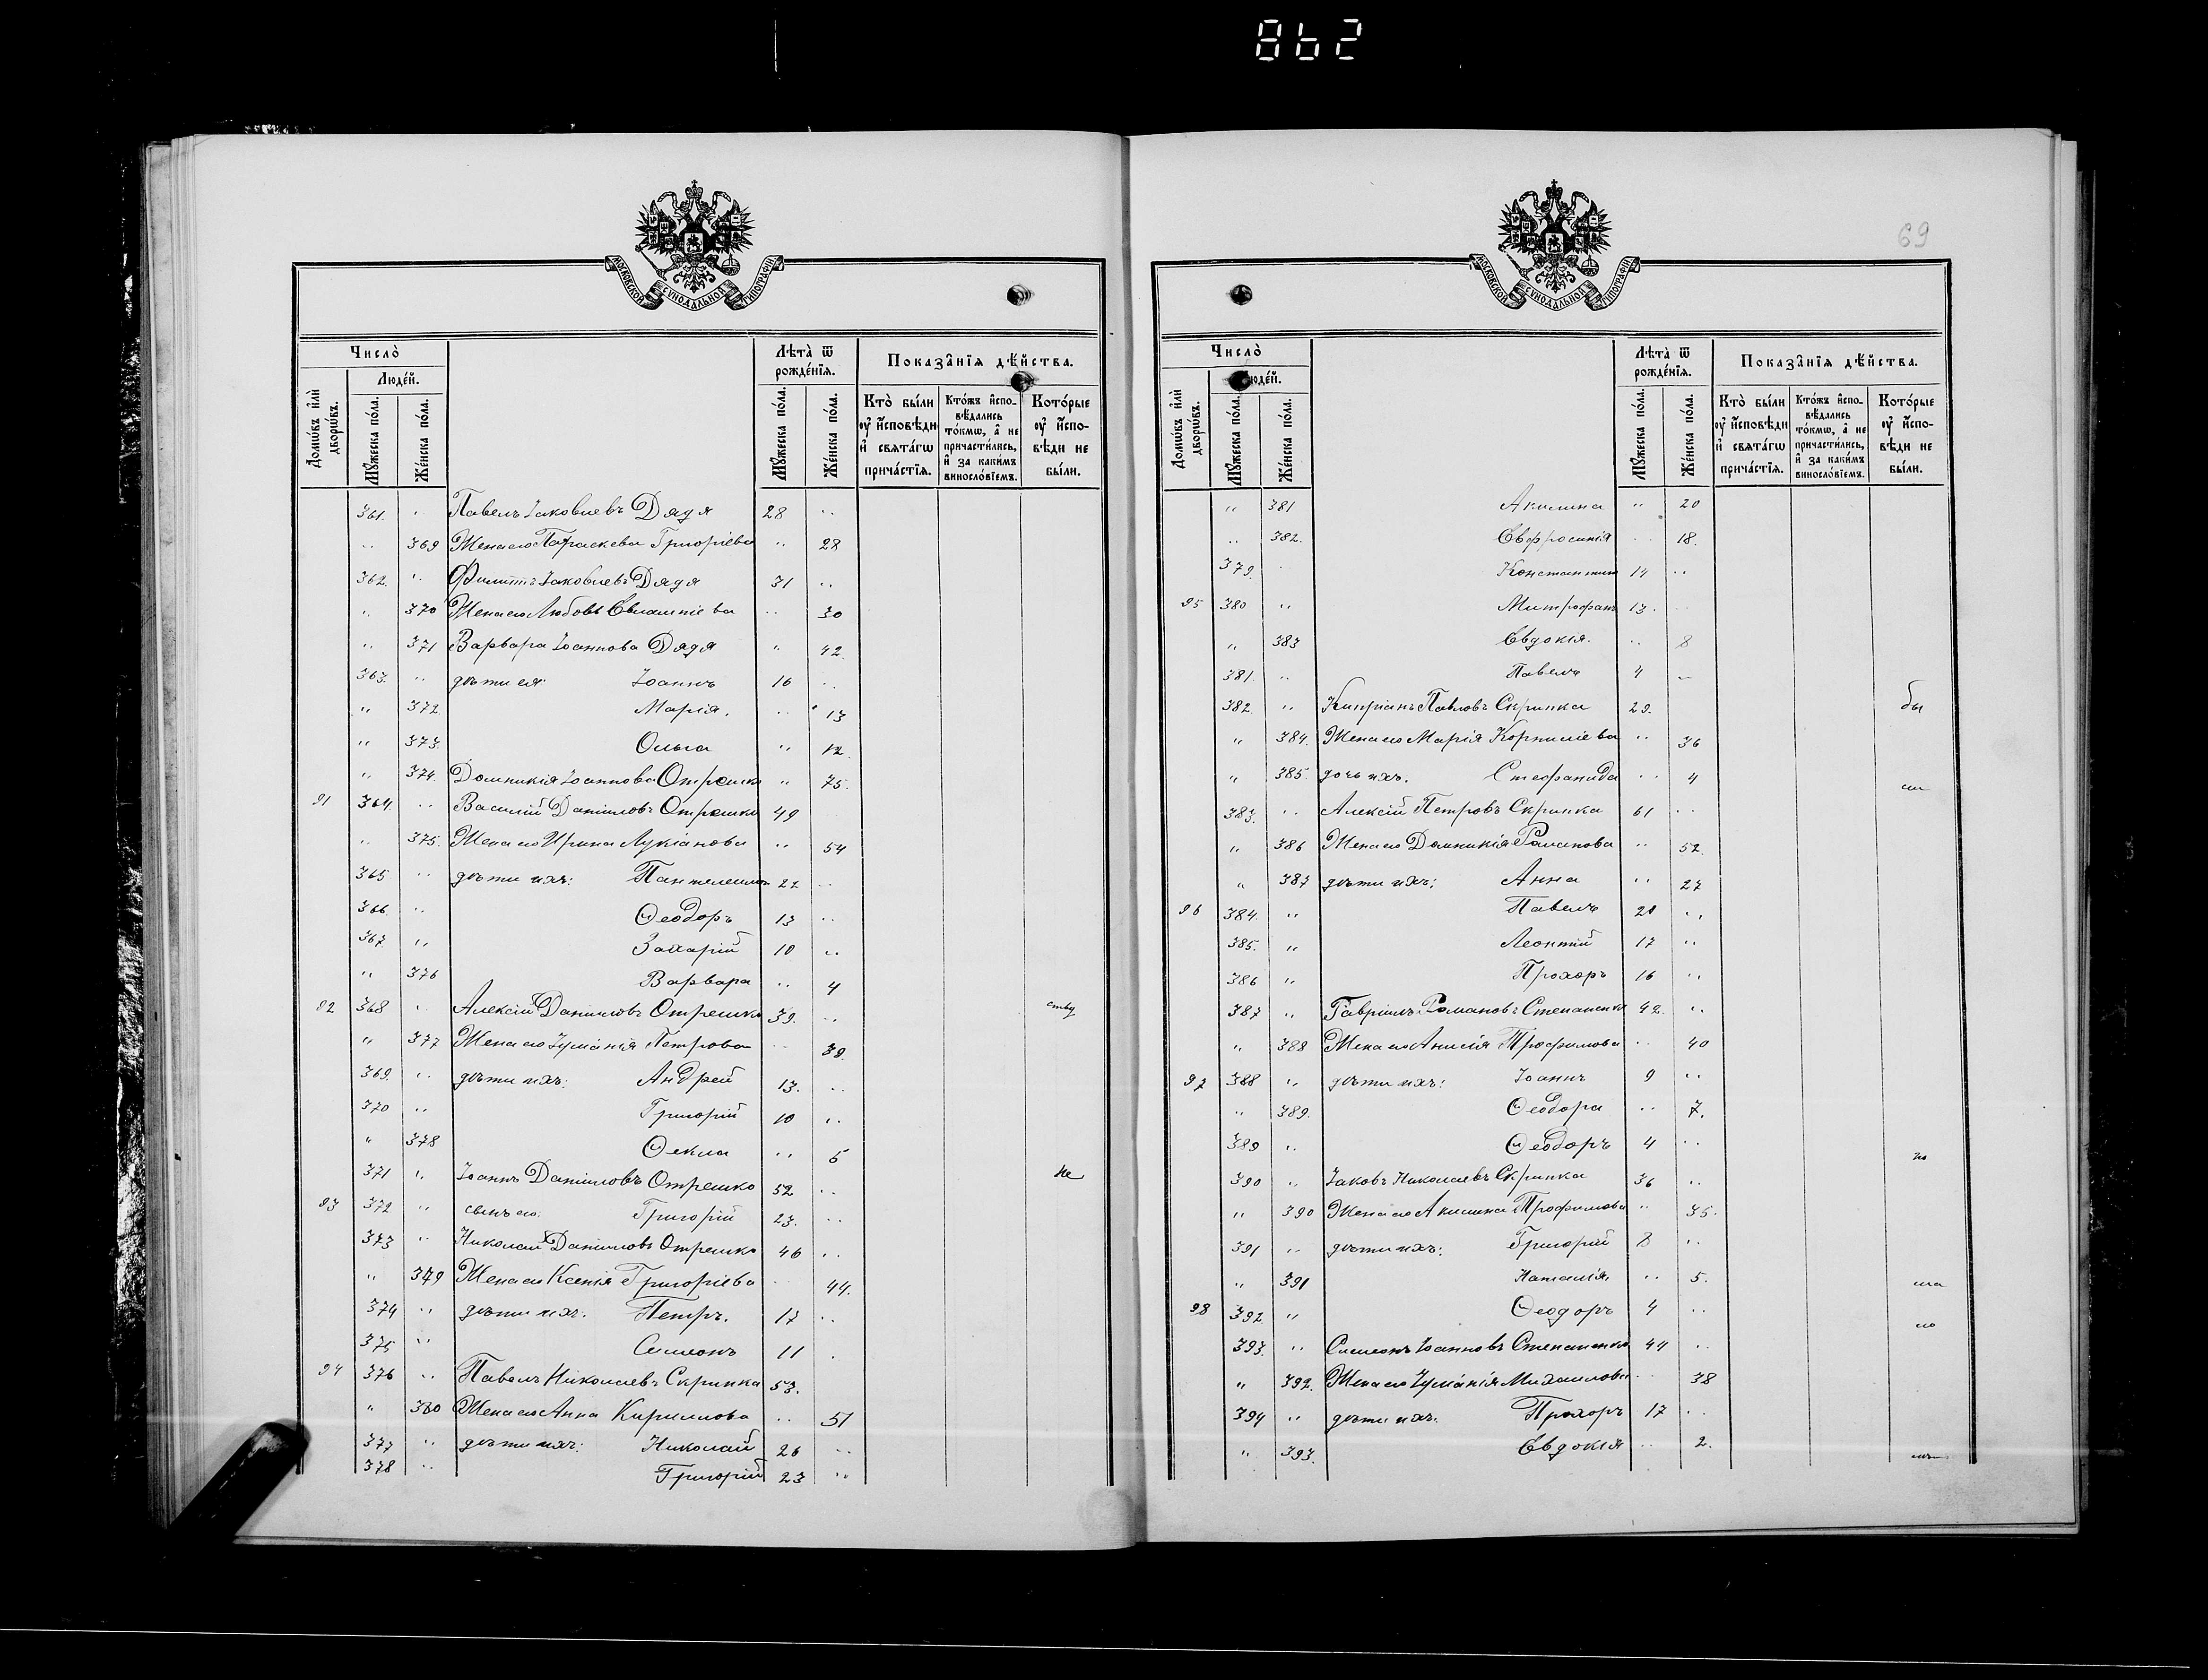 862
МОСКОВСКОЙ СѴНОДАЛЬНОЙ ТИПОГРАФІИ
Число̀
Люде́й.
Лѣта̀ ѿ рожде́нїѧ.
Показа̑нїѧ дѣ́йства.
Домѡ́въ и҆лѝ дворѡ́въ.
Мꙋ́жеска по́ла.
Же́нска по́ла.
Мꙋ́жеска по́ла.
Же́нска по́ла.
Кто̀ бы́ли ᲂу҆ и҆сповѣди и҆ свѧта́гѡ прича́стїѧ.
Кто́жъ и҆сповѣдались то́кмѡ, а҆ не причасти́лись, и҆ за каки́мъ винослові́емъ.
Кото́рые ᲂу҆ и҆сповѣди не бы́ли.
361. " Павелъ Іаковлевъ Дядя 28 "
" 369 Жена его Параскева Григоріева " 28
362. " Филиппъ Іаковлевъ Дядя 31 "
" 370 Жена его Любовь Евлампіева " 30
" 371 Варвара Іоаннова Дядя " 42.
363. " дѣти ея: Іоаннъ 16 "
" 372. Марія. " 13
" 373. Ольга " 12.
" 374. Домникія Іоаннова Отрешко " 75.
91 364. " Василій Даніиловъ Отрешко 49
" 375. Жена его Ирина Лукіанова " 54
365 " дѣти ихъ: Пантелеимонъ 22 "
366. " Ѳеодоръ 13 "
367 " Захарій 10 "
" 376 Варвара " 4
92 368 " Алексій Даніиловъ Отрешко 39. " ству
" 377 Жена его Іуліанія Петрова " 39.
369. " дѣти ихъ: Андрей 13. "
370 " Григорій 10 "
" 378 Ѳекла " 5
371 " Іоаннъ Даніиловъ Отрешко 52 " не
93 372 " сынъ его: Григорій 23. "
373 " Николай Даніиловъ Отрешко 46 "
" 379 Жена его Ксенія Григоріева " 44.
374 " дѣти ихъ: Петръ. 17 "
375 " Симеонъ 11 "
94 376 " Павелъ Николаевъ Скрипка 53.
" 380 Жена его Анна Кириллова " 51
377 " дѣти ихъ: Николай 26 "
378 " Григорій 23 "
69
МОСКОВСКОЙ СѴНОДАЛЬНОЙ ТИПОГРАФІИ
Число̀
Люде́й.
Лѣта̀ ѿ рожде́нїѧ.
Показа̑нїѧ дѣ́йства.
Домѡ́въ и҆лѝ дворѡ́въ.
Мꙋ́жеска по́ла.
Же́нска по́ла.
Мꙋ́жеска по́ла.
Же́нска по́ла.
Кто̀ бы́ли ᲂу҆ и҆сповѣди и҆ свѧта́гѡ прича́стїѧ.
Кто́жъ и҆сповѣдались то́кмѡ, а҆ не причасти́лись, и҆ за каки́мъ винослові́емъ.
Кото́рые ᲂу҆ и҆сповѣди не бы́ли.
" 381 Акилина " 20
" 382. Евфросинія " 18.
379. " Константинъ 14 "
95 380 " Митрофанъ 13. "
" 383 Евдокія. " 8
381. " Павелъ 4 "
382. " Кипріанъ Павловъ Скрипка 29. бы
" 384. Жена его Марія Корниліева " 36
" 385. дочь ихъ. Стефанида " 4
383. " Алексій Петровъ Скрипка 61 "
" 386 Жена его Домникія Романова " 52.
" 387 дѣти ихъ; Анна " 27
96 384. " Павелъ 21 "
385. " Леонтій 17 "
386 " Прохоръ 16 "
387 " Гавріилъ Романовъ Степаненко 42. "
" 388 Жена его Анисія Трофимова " 40
97 388 " дѣти ихъ: Іоаннъ 9 "
" 389. Ѳеодора " 7.
389 " Ѳеодоръ 4 "
390 " Іаковъ Николаевъ Скрипка 36 " по
" 390 Жена его Акилина Трофимова " 35.
391 " дѣти ихъ: Григорій 8 "
" 391 Наталія. " 5.
98 392. " Ѳеодоръ 4 "
393. " Симеонъ Іоанновъ Степаненко 44 "
" 392. Жена его Іуліанія Михаилова " 38
394 " дѣти ихъ. Прохоръ 17 "
" 393. Евдокія " 2.